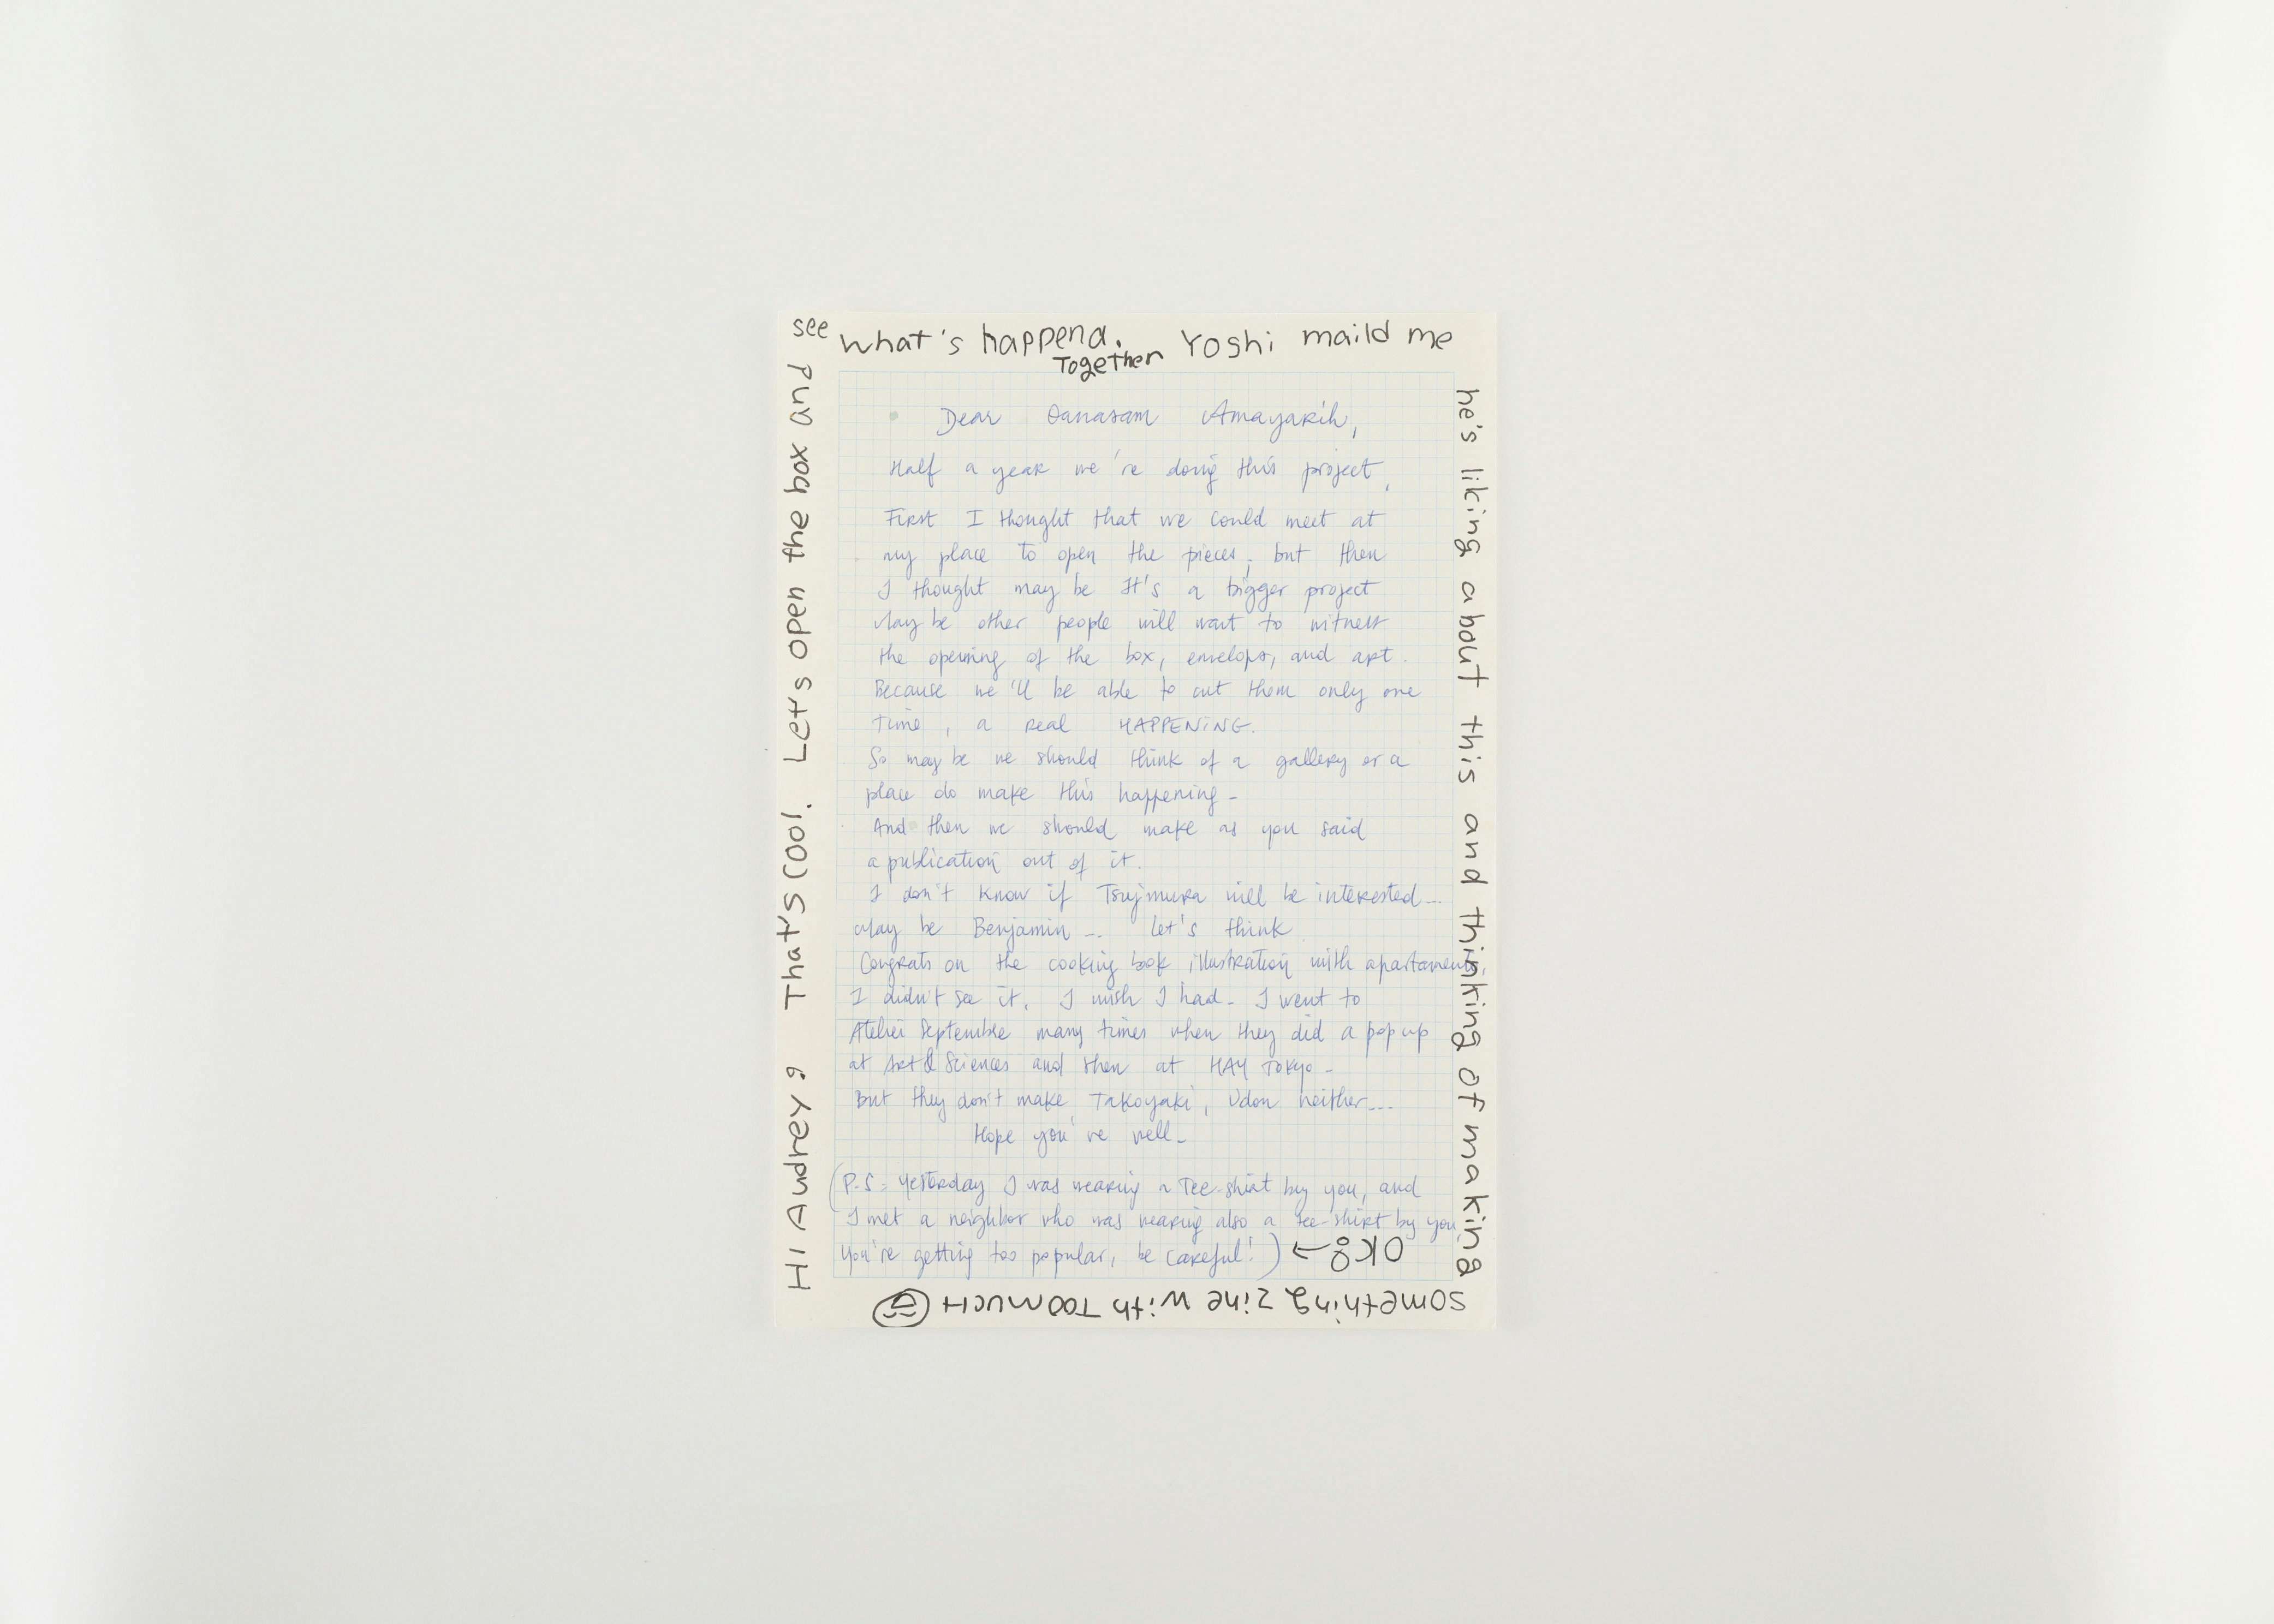 Dear Oanasam Amayakih,
Half a year we're doing this project,
First I thought that we could meet at
my place to open the pieces, but then
I thought may be It's a bigger project
May be other people will want to witness
the opening of the box, envelops, and art.
Because we'll be able to cut them only one
time, a real HAPPENING.
So may be we should think of a gallery or a
place do make this happening -
And then we should make as you said
a publication out of it.
I don't know if Tsujimura will be interested...
May be Benjamin... let's think
Congrats on the cooking book illustration with apartamento,
I didn't see it. I wish I had. I went to
Atelier Septembre many times when they did a pop up
at Art & Sciences and then at HAY TOKYO -
But they don't make Takoyaki, Udon neither...
Hope you're well -
(P.S: Yesterday I was wearing a Tee-shirt by you, and
I met a neighbor who was wearing also a tee-shirt by you,
You're getting too popular, be careful!) ← OK
Hi Audrey, That's cool. Let's open the box and
see what's happend. Yoshi maild me
Together
he's liking about this and thinking of making
something zine with TOO MUCH